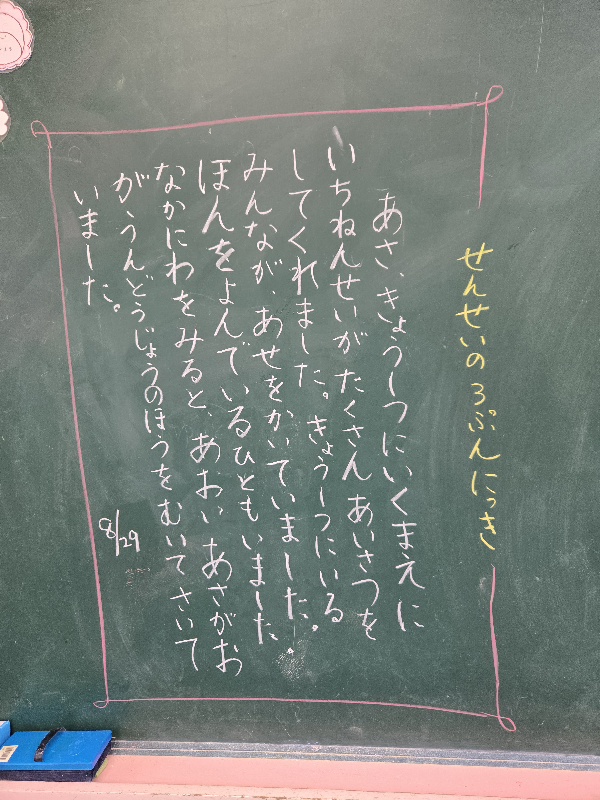 せんせいの3ぷんにっき
あさ、きょうしつにいくまえに
いちねんせいがたくさんあいさつを
してくれました。きょうしつにいる
みんなが、あせをかいていました。
ほんをよんでいるひともいました。
なかにわをみると、あおいあさがお
がうんどうじょうのほうをむいてさいて
いました。
8/29